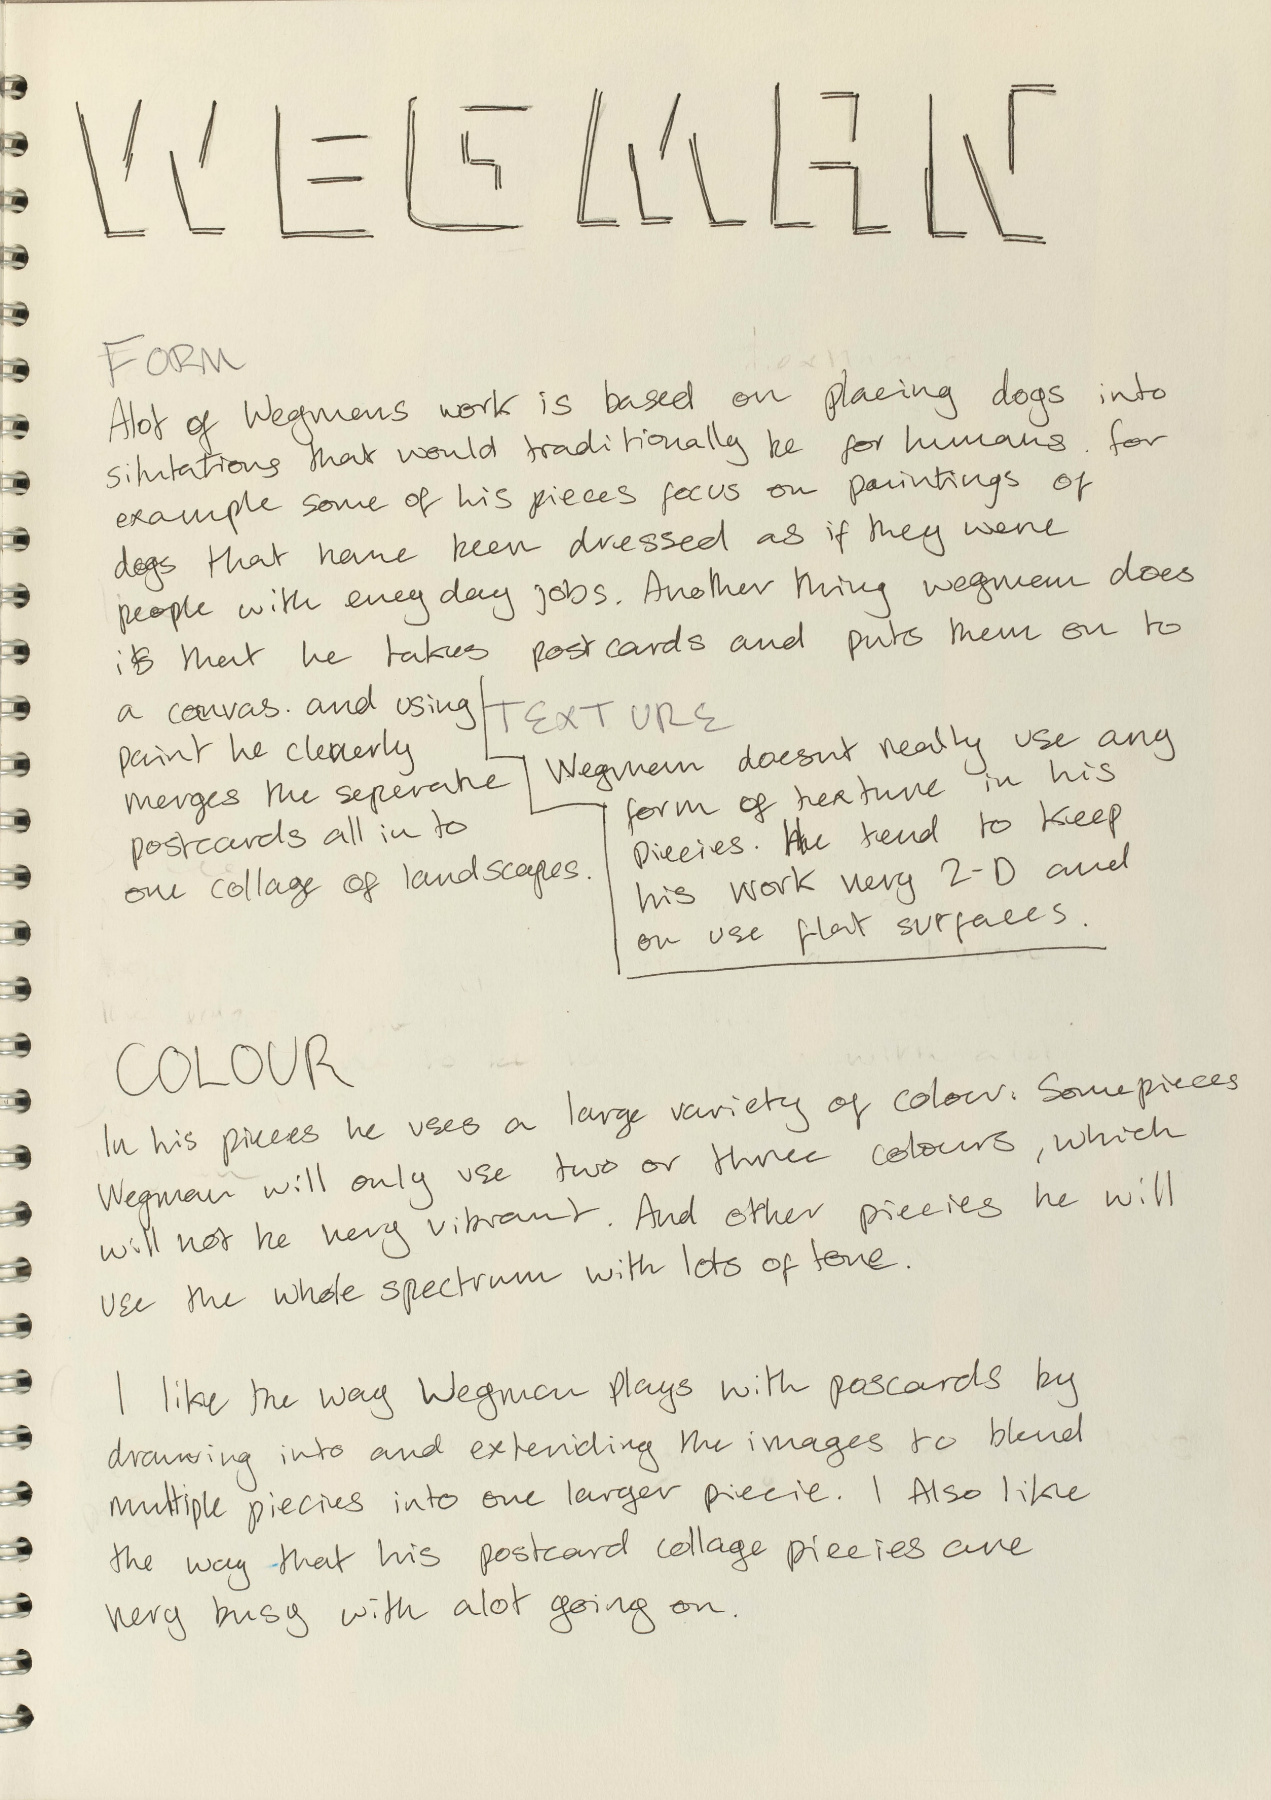 WEGMAN
FORM
Alot of Wegmans work is based on placing dogs into
situtations that would traditionally be for humans. for
example some of his pieces focus on paintings of
dogs that have been dressed as if they were
people with every day jobs. Another thing wegman does
is that he takes postcards and puts them on to
a canvas. and using
paint he cleverly
merges the seperate
postcards all in to
one collage of landscapes.
TEXTURE
Wegman doesnt really use any
form of texture in his
piecies. He tend to keep
his work very 2-D and
on use flat surfaces.
COLOUR
In his pieces he uses a large variety of colour. Some pieces
Wegman will only use two or three colours, which
will not be very vibrant. And other piecies he will
use the whole spectrum with lots of tone.
I like the way Wegman plays with poscards by
drawing into and extending the images to blend
multiple piecies into one larger piecie. I Also like
the way that his postcard collage piecies are
very busy with alot going on.